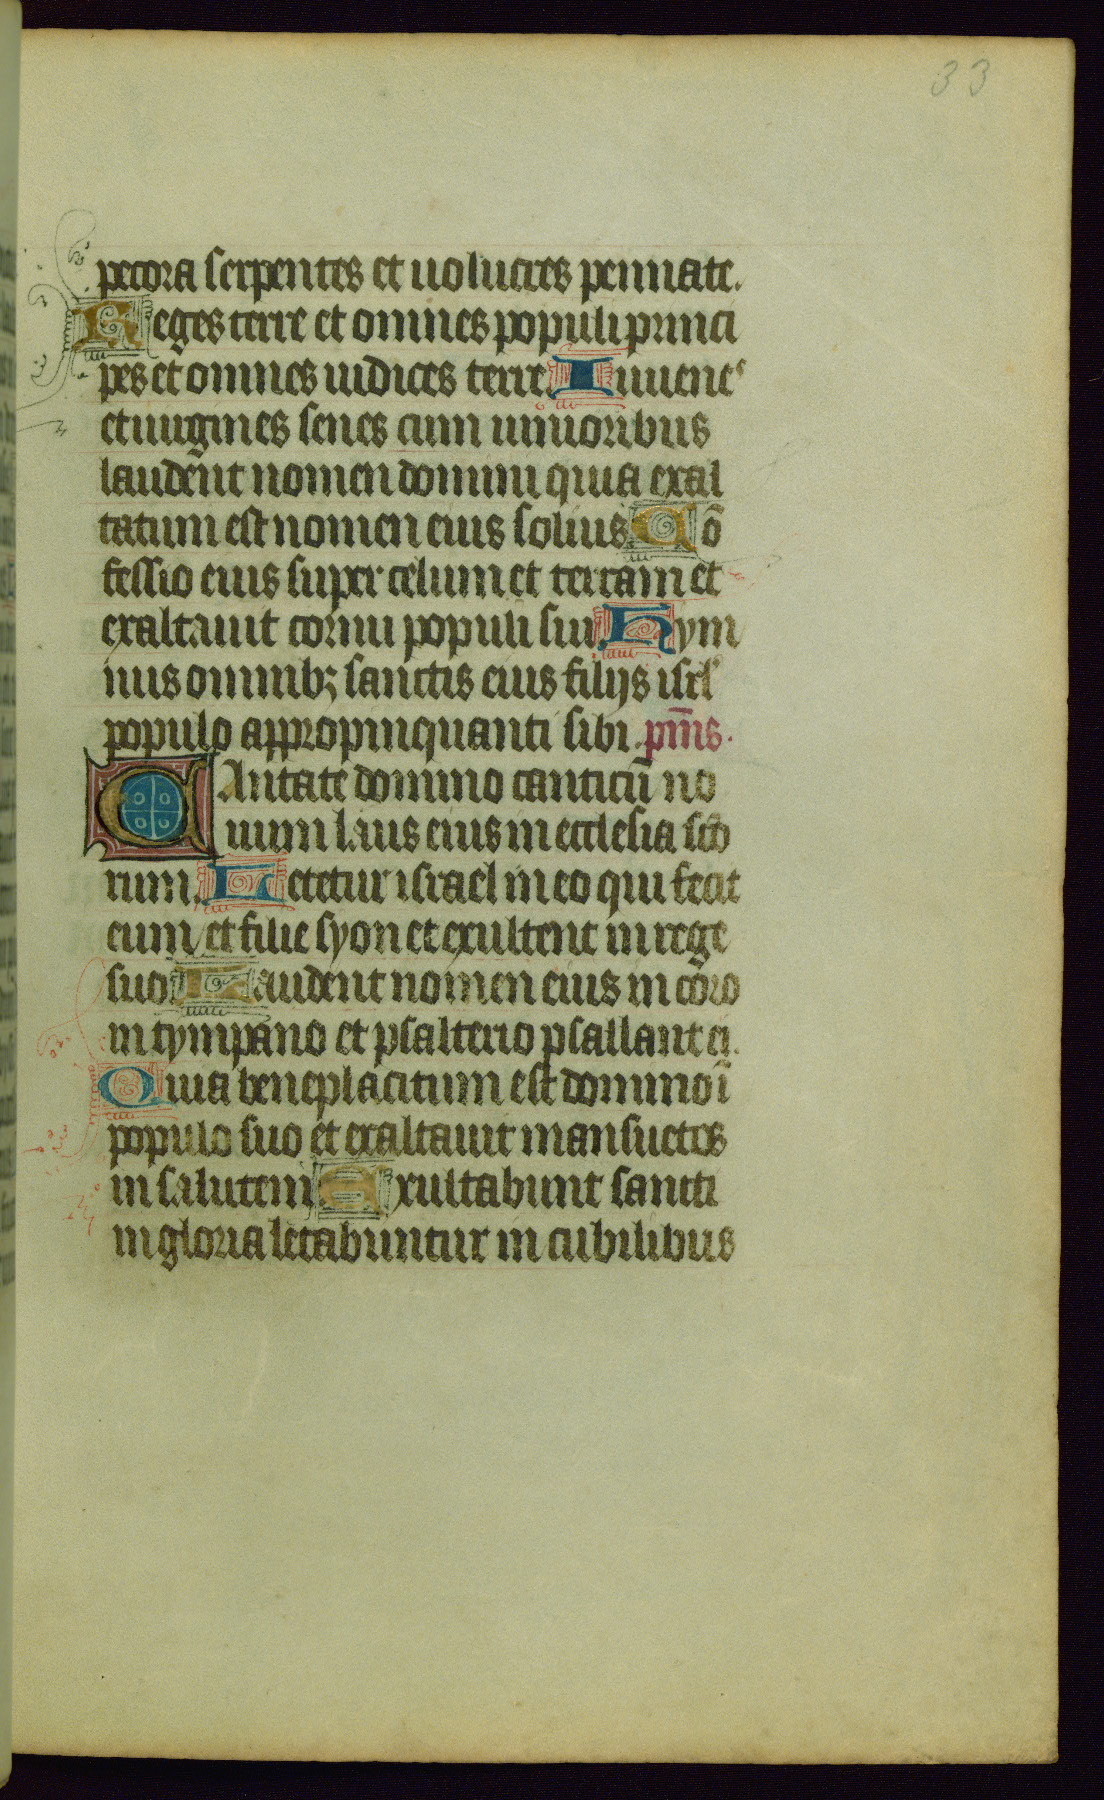 33
pecora serpentes et uolucres pennate.
Reges terre et omnes populi princi
pes et omnes iudices terre. Iuuenes
et uirgines senes cum iunioribus
laudent nomen domini quia exal
tatum est nomen eius solius. Cō
fessio eius super celum et terram et
exaltauit cornu populi sui. Hym
nus omnibꝫ sanctis eius filijs isrl'
populo appropinquanti sibi. pm̄s.
Cantate domino canticū no
uum laus eius in ecclesia sc̄o
rum. Letetur israel in eo qui fecit
eum et filie syon et exultent in rege
suo. Laudent nomen eius in coro
in tympano et psalterio psallant ei.
Quia beneplacitum est domino ī
populo suo et exaltauit mansuetos
in salutem. Exultabunt sancti
in gloria letabuntur in cubilibus